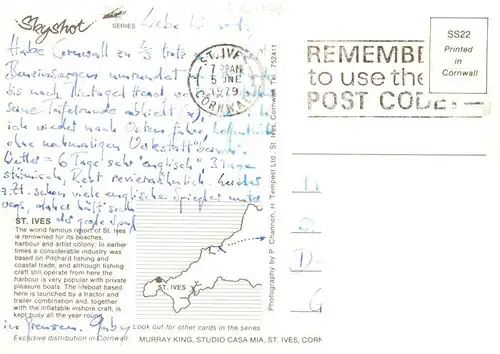 Skyshot
SERIES
Liebe
Habe Cornwall zu 2/3 trotz
Benzinsorgen umrundet
bis nach Tintagel Head wo
seine Tafelrunde abhielt
ich wieder nach Osten fahre, hoffentlich
ohne nochmaligen Werkstatt
Wetter = 6 Tage sehr "englisch" 3 Tage
stürmisch, Rest
z. Zt. schon viele englische unter
wegs, daher hält sich
der große
in Grenzen. Gaby
ST. IVES
The world famous resort of St. Ives
is renowned for its beaches,
harbour and artist colony. In earlier
times a considerable industry was
based on Pilchard fishing and
coastal trade, and although fishing
craft still operate from here the
harbour is very popular with private
pleasure boats. The lifeboat based
here is launched by a tractor and
trailer combination and, together
with the inflatable inshore craft, is
kept busy all the year round.
Exclusive distribution in Cornwall
ST. IVES
Look out for other cards in the series
MURRAY KING, STUDIO CASA MIA, ST. IVES, CORN
Photography by P. Channon, H. Tempest Ltd., St. Ives, Cornwall. Tel. 752411
ST. IVES
5 JUNE
1979
CORNWALL
REMEMBE
to use the
POST CODE
SS22
Printed
in
Cornwall